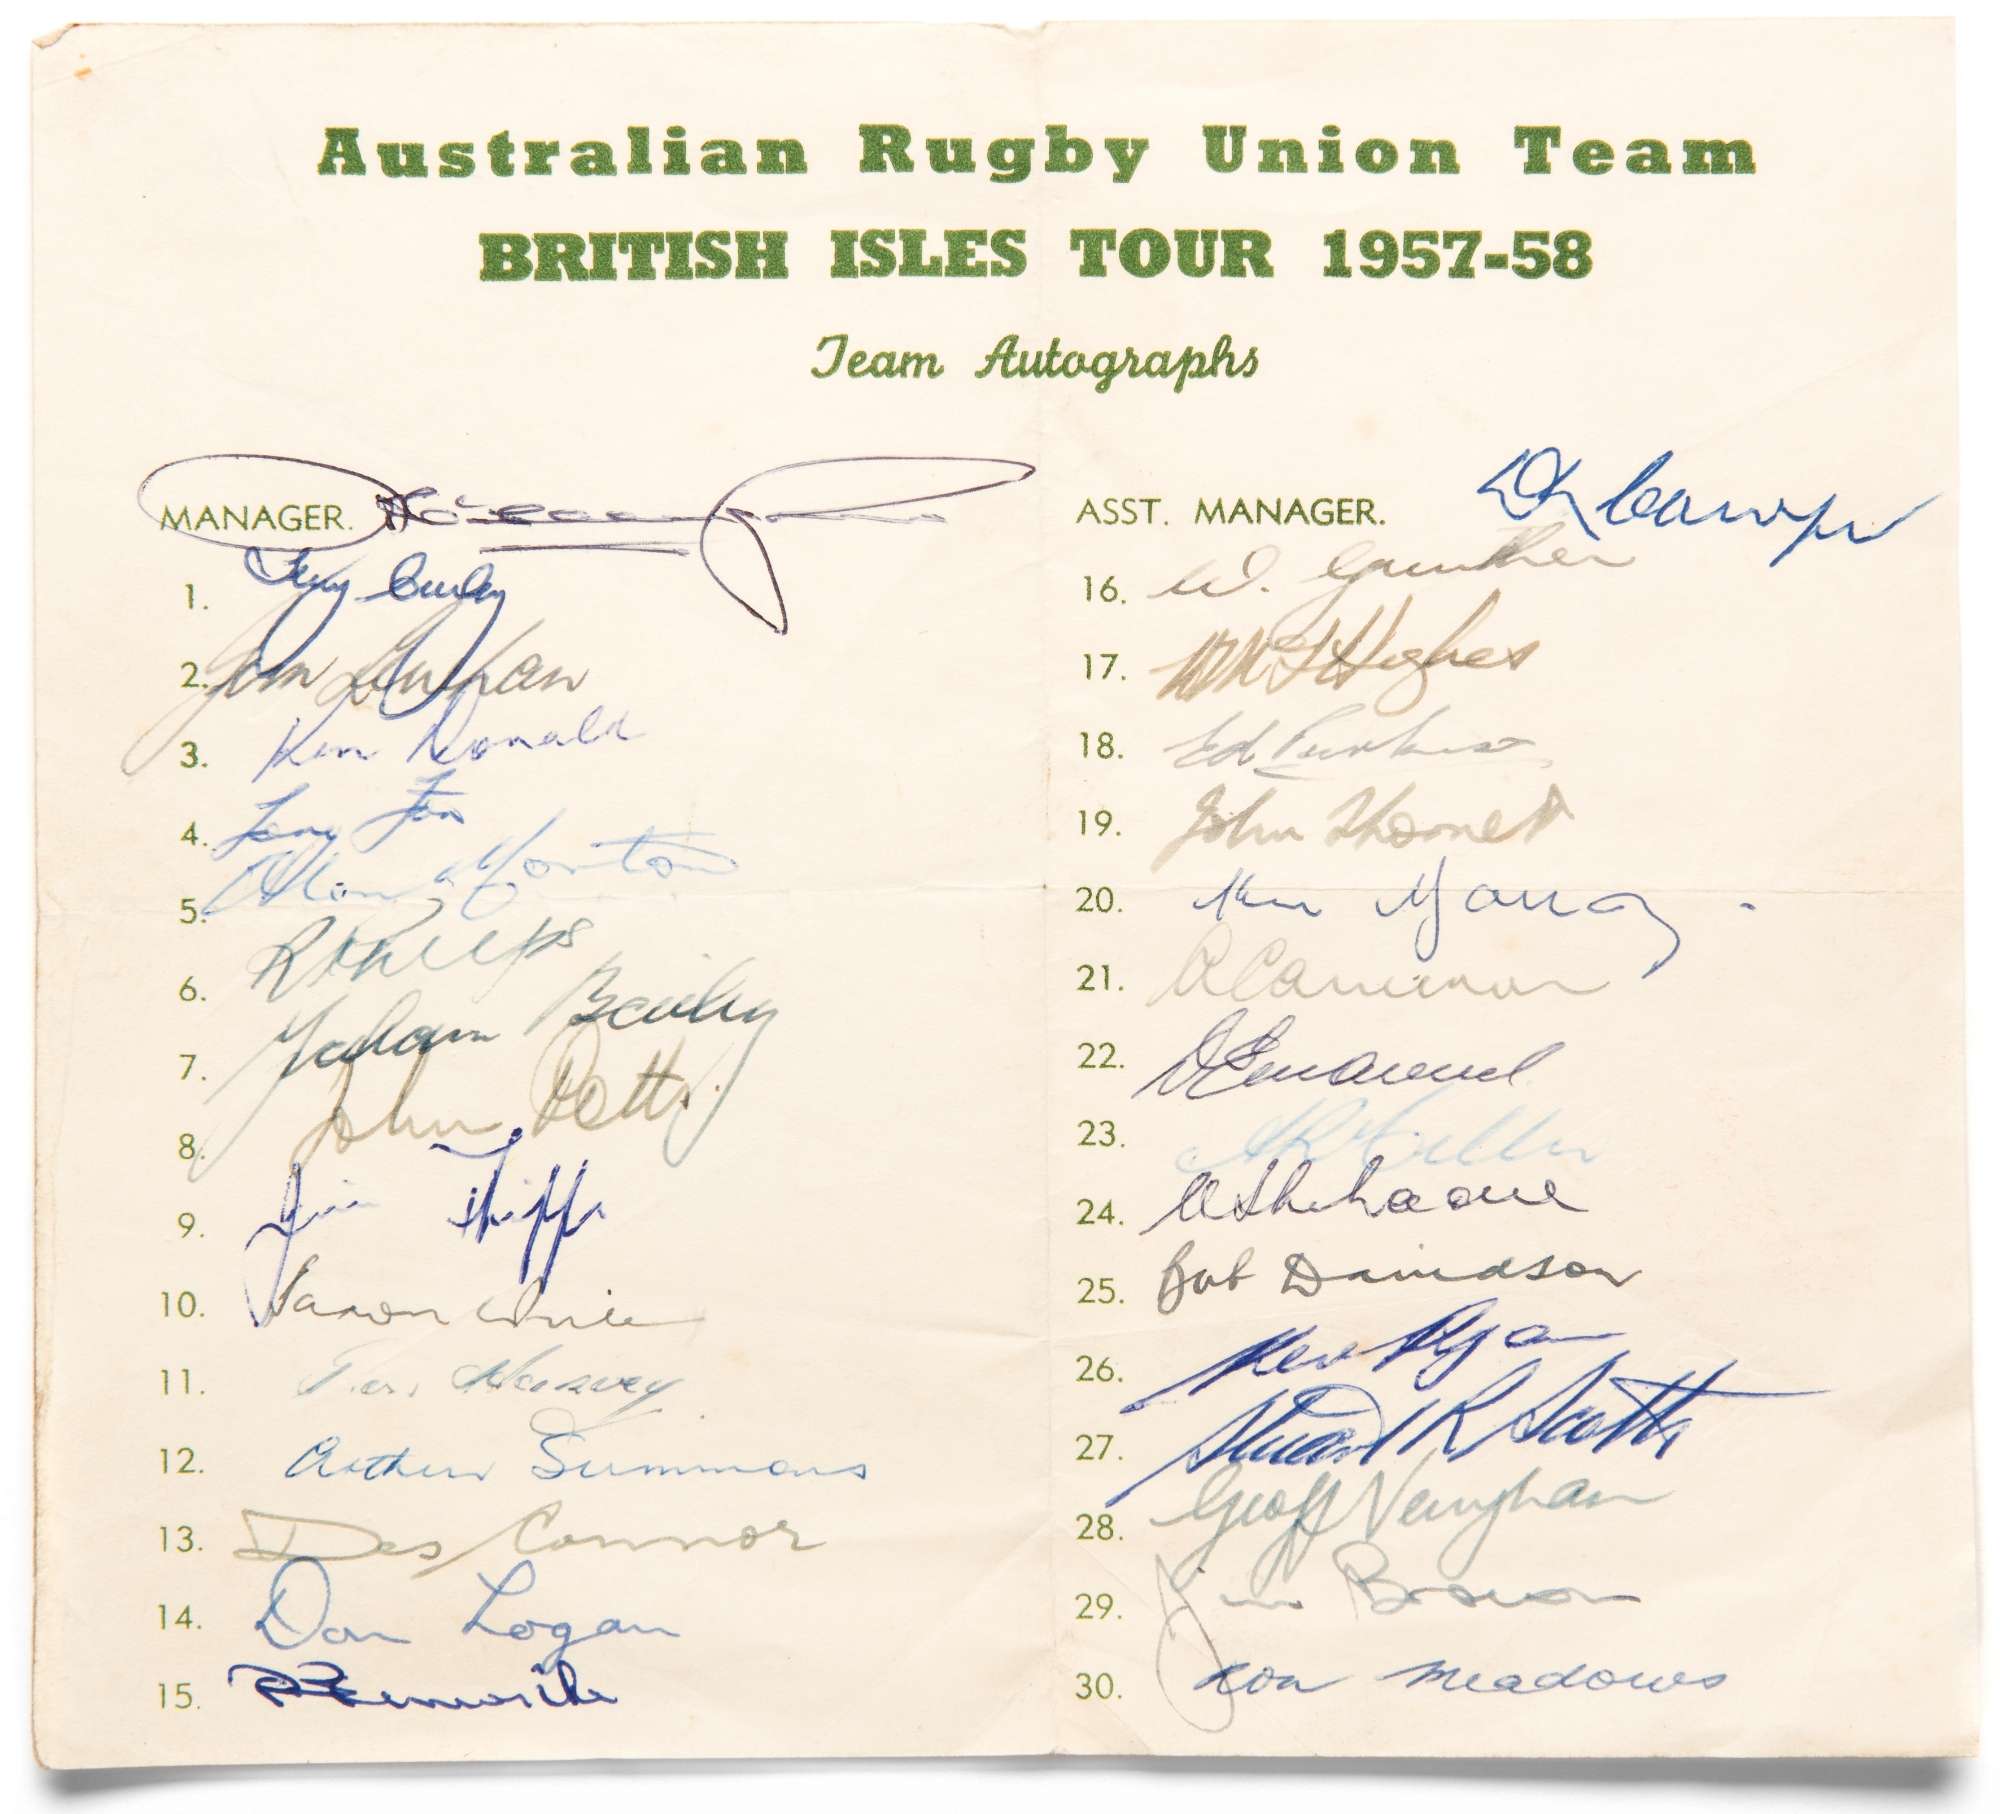 Australian Rugby Union Team
BRITISH ISLES TOUR 1957-58
Team Autographs
MANAGER.
1. Terry Curley
2. Jim Lenehan
3. Ken Donald
4. Tony Fox
5. Alan Morton
6. R Phelps
7. Graham Bailey
8. John Potts
9. Jim Phipps
10. Saxon White
11. Harvey
12. Arthur Summons
13. Des Connor
14. Don Logan
15.
ASST. MANAGER.
16. W. Gunther
17. Hughes
18. Ed Purkiss
19. John Thornett
20. Ken Yanz.
21. A Cameron
22. D Emanuel
23. A R Miller
24. A Shehadie
25. Bob Davidson
26. Kev Ryan
27. Stuart R Scotts
28. Geoff Vaughan
29. Jim Brown
30. Ron Meadows